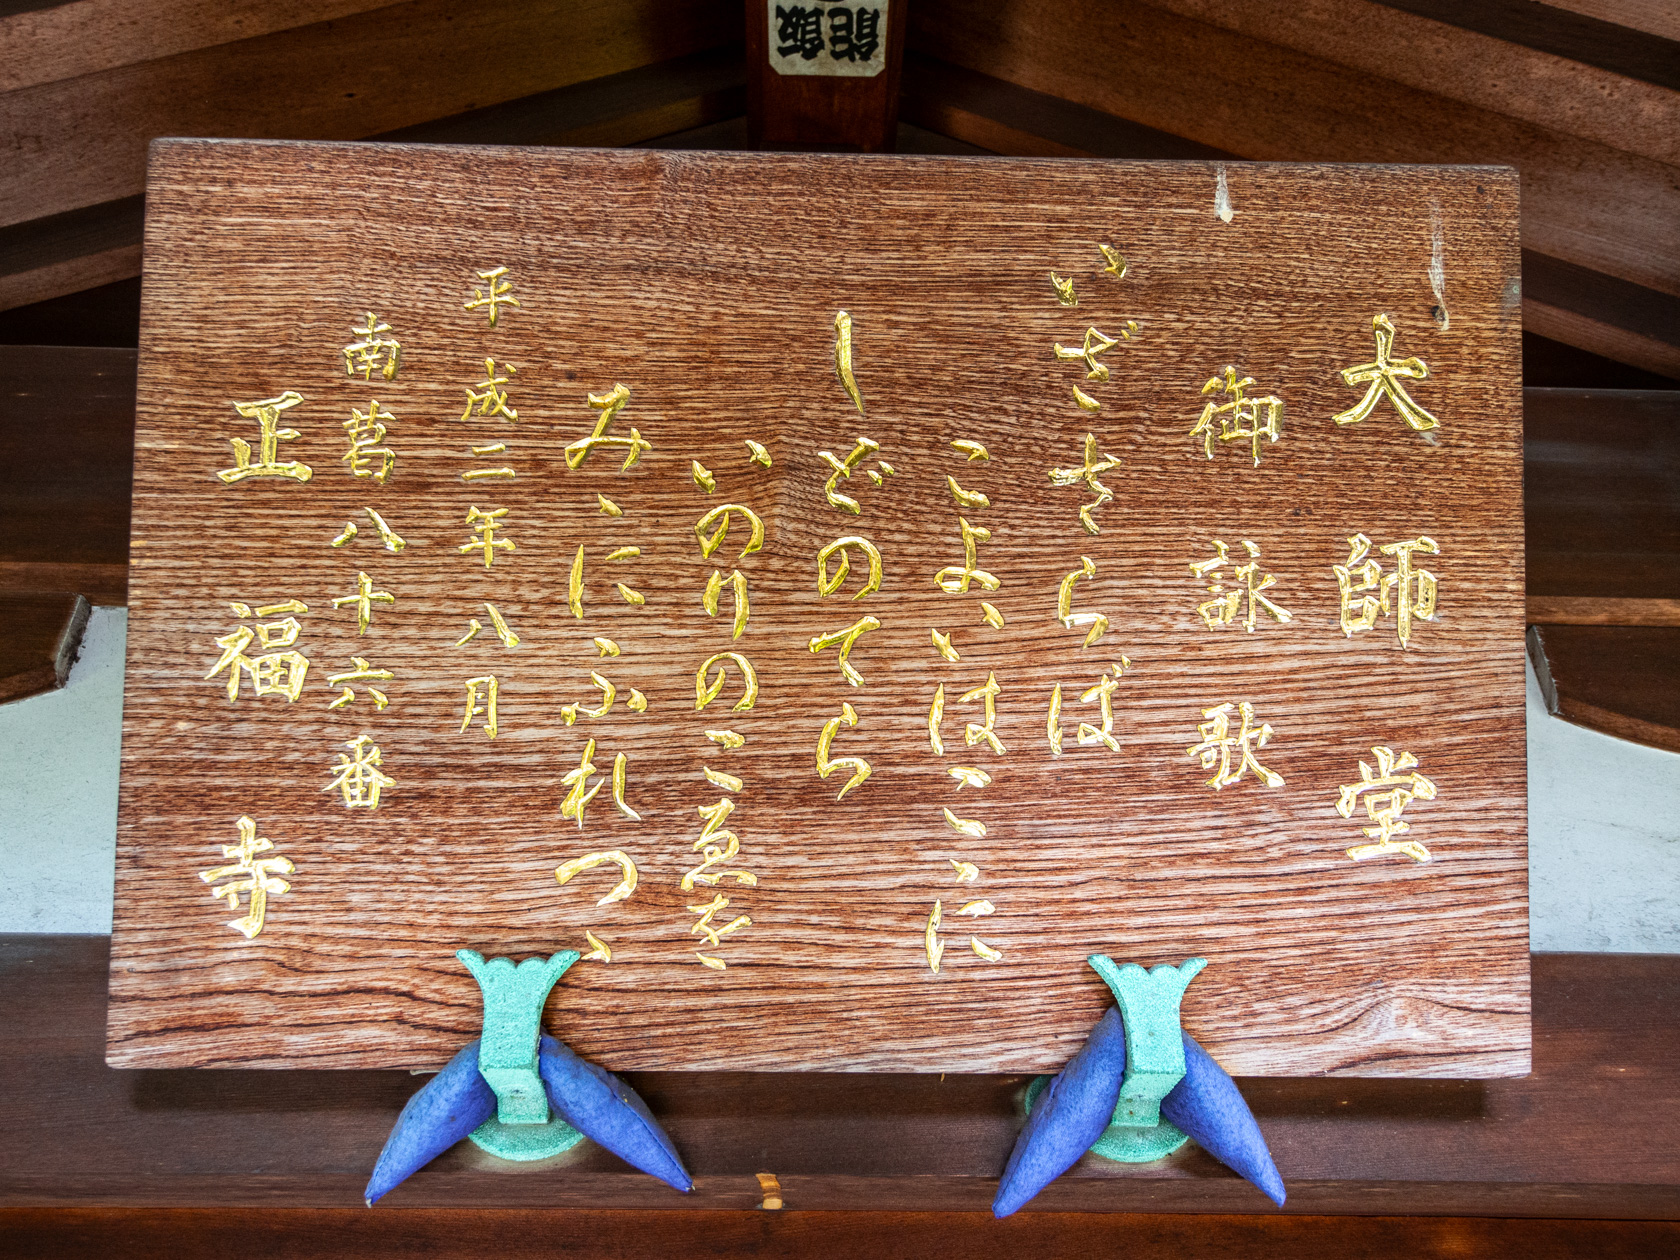 飯能
大師堂
御詠歌
いざさらば
こよいはこゝに
しどのてら
いのりのこゑを
みゝにふれつゝ
平成二年八月
南葛八十六番
正福寺